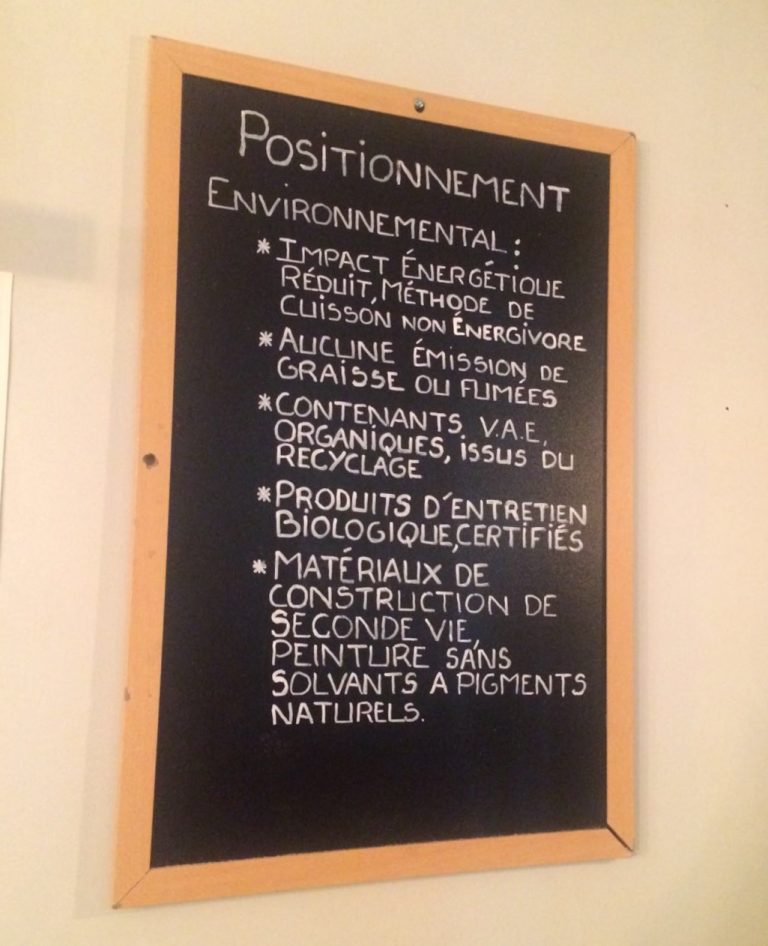 POSITIONNEMENT
ENVIRONNEMENTAL :
* IMPACT ÉNERGÉTIQUE
RÉDUIT, MÉTHODE DE
CUISSON NON ÉNERGIVORE
* AUCUNE ÉMISSION DE
GRAISSE OU FUMÉES
* CONTENANTS V.A.E,
ORGANIQUES, ISSUS DU
RECYCLAGE
* PRODUITS D'ENTRETIEN
BIOLOGIQUE, CERTIFIÉS
* MATÉRIAUX DE
CONSTRUCTION DE
SECONDE VIE,
PEINTURE SANS
SOLVANTS A PIGMENTS
NATURELS.